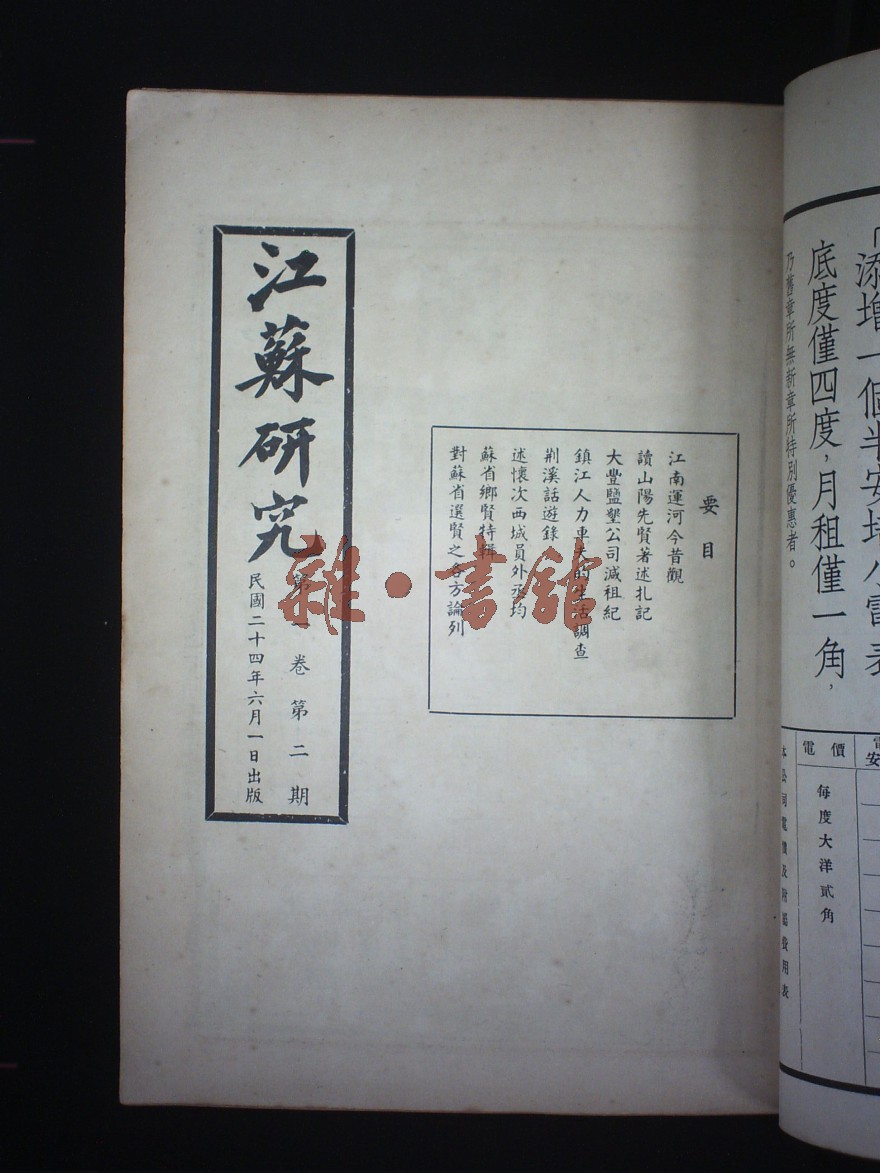 「添增一個半安培小電表
底度僅四度，月租僅一角，
乃舊章所無新章所特別優惠者。
電價
每度大洋貳角
本公司電價及附屬費用表
要目
江南運河今昔觀
讀山陽先賢著述扎記
大豐鹽墾公司減租紀
鎮江人力車夫的生活調查
荆溪話遊錄
述懷次西城員外丞均
蘇省鄉賢特輯
對蘇省選賢之各方論列
江蘇研究
第一卷第二期
民國二十四年六月一日出版
雜·書館